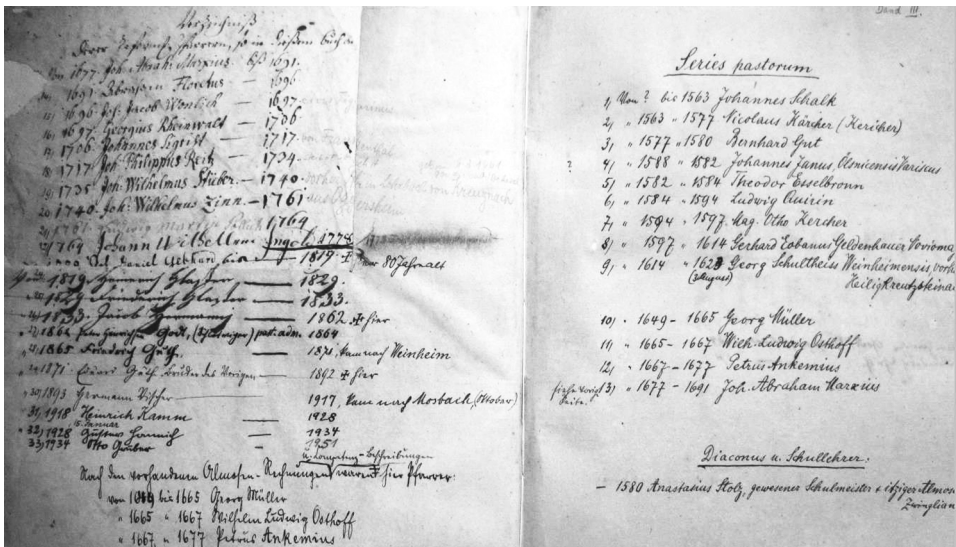 Verzeichniß
Derer Reformd. Pfarrern, so in diesem buch
Von 1677. Joh. Abrah. Marxius. biß 1691.
1691. Abraham Floretus — 1696.
1696. Joh. Jacob Wonlich — 1697.
16, 1697. Georgius Rheinwalt — 1706
17, 1706. Johannes Sigrist — 1717.
18 1717 Joh. Philippus Reik — 1734.
19 1735 Joh. Wilhelmus Stüber. — 1740.
20 1740. Joh. Wilhelmus Zinn. — 1761
1761 1769
1769 Johann Wilhelm Engel. 1778
Daniel Gebhard bis — 1819. ☩ hier 80 Jahre alt
1819. Heinrich — 1829.
1829. Friederich — 1833.
1833. Jacob — 1862 ☩ hier
1862 past. adm. 1864
1865 Friedrich Güth. — 1871, kam nach Weinheim
1871. Güth Bruder des Vorigen — 1892 ☩ hier
30) 1893 Hermann Vischer — 1917, kam nach Mosbach, (Oktober)
31) 1918 Heinrich Kamm — 1928
15. Januar
32) 1928 Gustav — 1934
33) 1934 Otto Gruber — 1951
u. Kompetenz-Beschreibungen
Nach den vorhandenen Almosen-Rechnungen waren hier Pfarrer:
von 1649 bis 1665 Georg Müller
" 1665 " 1667 Wilhelm Ludwig Osthoff
" 1667 " 1677 Petrus Ankemius
Band III.
Series pastorum
1, Von ? bis 1563 Johannes Schalk
2, " 1563 " 1577 Nicolaus Kärcher (Kercher)
3, " 1577 " 1580 Bernhard Gut
? 4, " 1588 " 1582 Johannes Janus, Ölsnicensis Variscus
5, " 1582 " 1584 Theodor Esselbronn
6, " 1584 " 1594 Ludwig Quirin
7, " 1594 " 1597. Mag. Otho Kercher
8, " 1597 " 1614 Gerhard Eobanus Geldenhauer
9, " 1614 " 1623 Georg Schultheiss Weinheimensis,
(August) Heiligkreuzsteinach
10, " 1649 - 1665 Georg Müller
11, " 1665 - 1667 Wilh. Ludwig Osthoff
12, " 1667 - 1677 Petrus Ankemius
(siehe vorige 13, " 1677 - 1691 Joh. Abraham Marxius
Seite.
Diaconus u. Schullehrer.
— 1580 Anastasius Stolz, gewesener Schulmeister itziger